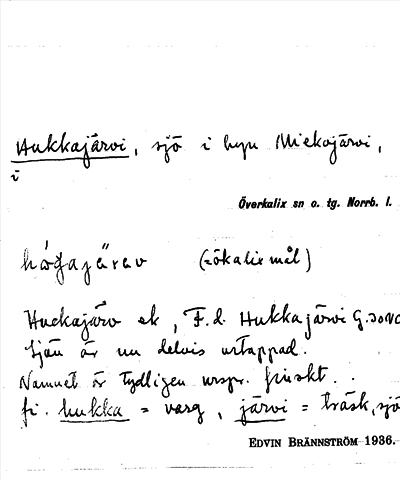 Hukkajärvi, sjö i byn Miekojärvi,
i
Överkalix sn o. tg. Norrb. l.
(=ökalixmål)
Huckajärv ek, F.d. Hukkajärvi G.
Sjön är nu delvis urtappad.
Namnet är tydligen urspr. finskt.
fi. hukka = varg, järvi = träsk, sjö
EDVIN BRÄNNSTRÖM 1936.